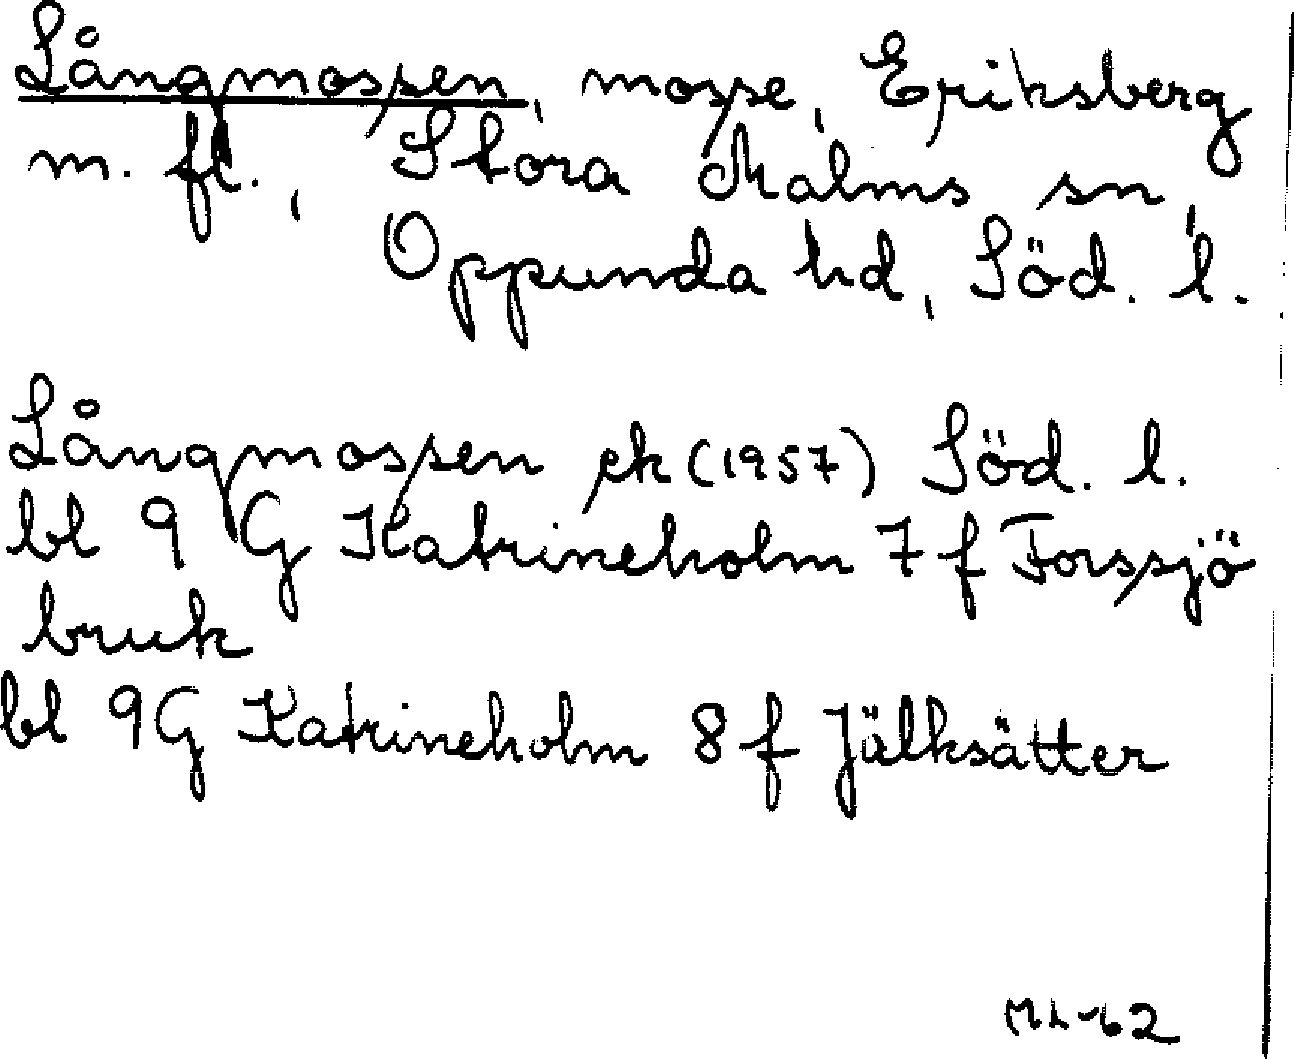 Långmossen, mosse, Eriksberg
m. fl., Stora Malms sn,
Oppunda hd, Söd. l.
Långmossen ek (1957) Söd. l.
bl 9 G Katrineholm 7 f Forssjö
bruk
bl 9G Katrineholm 8 f Jälksätter